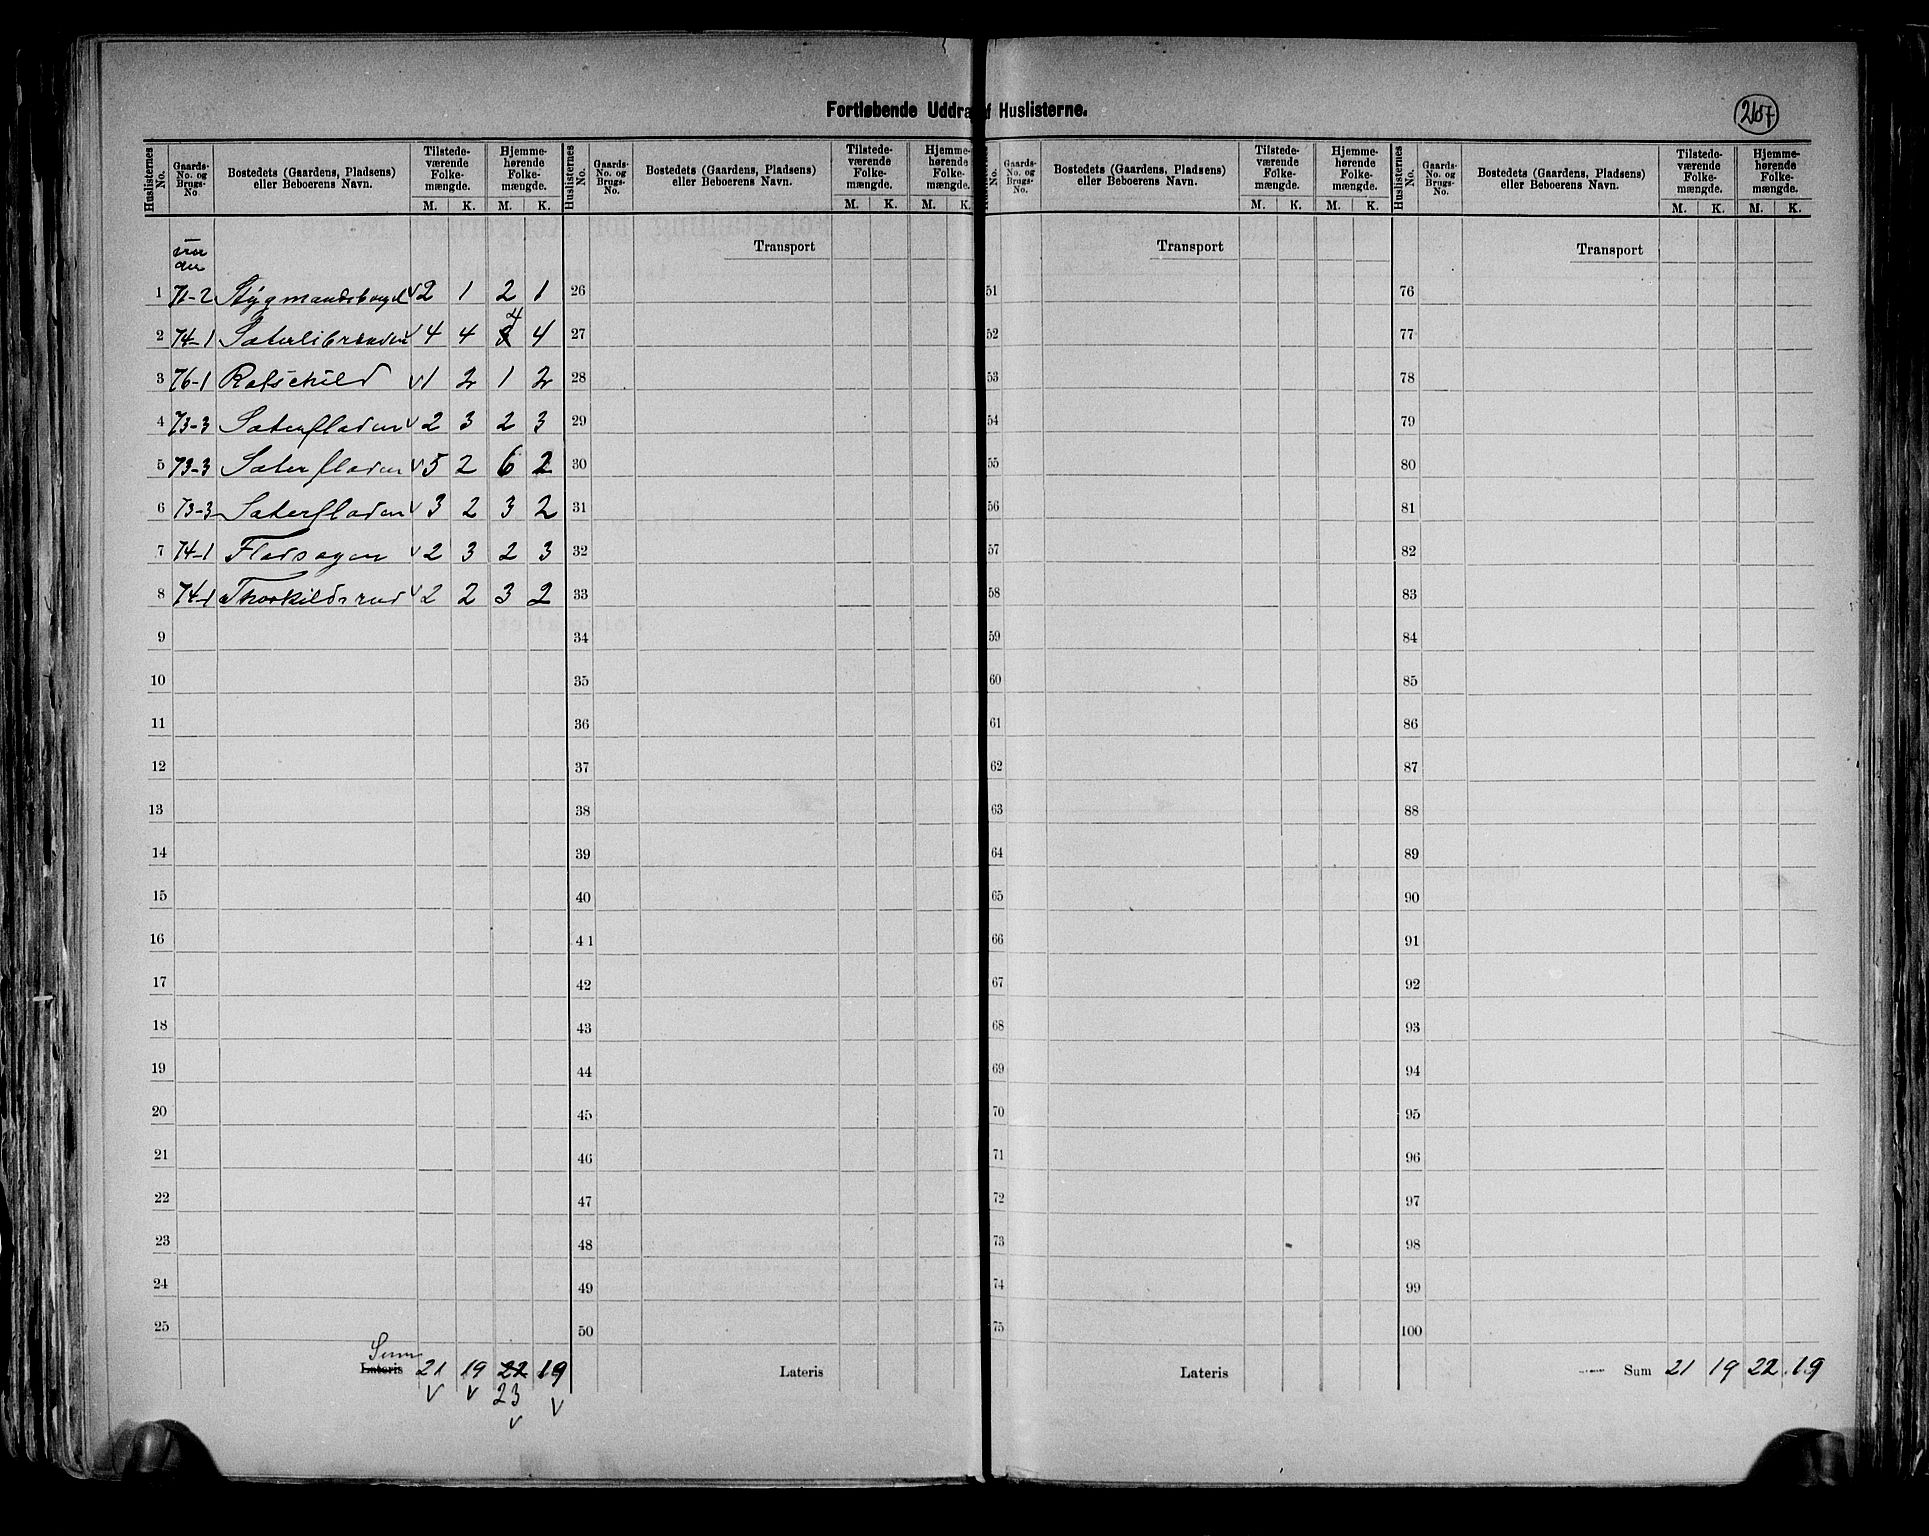 Fortløbende Uddra f Huslisterne.
267
Huslisternes No. Gaards-No. og Brugs-No. Bostedets (Gaardens, Pladsens) eller Beboerens Navn. Tilstedeværende Folkemængde. M. K. Hjemmehørende Folkemængde. M. K.
Huslisternes No. Gaards-No. og Brugs-No. Bostedets (Gaardens, Pladsens) eller Beboerens Navn. Tilstedeværende Folkemængde. M. K. Hjemmehørende Folkemængde. M. K.
No. Gaards-No. og Brugs-No. Bostedets (Gaardens, Pladsens) eller Beboerens Navn. Tilstedeværende Folkemængde. M. K. Hjemmehørende Folkemængde. M. K.
Huslisternes No. Gaards-No. og Brugs-No. Bostedets (Gaardens, Pladsens) eller Beboerens Navn. Tilstedeværende Folkemængde. M. K. Hjemmehørende Folkemængde. M. K.
un
der
Transport Transport Transport
1 71-2 Stygmandsbraget v 2 1 2 1 26 51 76
2 74-1 Sæterlibraaden v 4 4 3 4 4 27 52 77
3 76-1 Rotschild v 1 2 1 2 28 53 78
4 73-3 Sæterfladen v 2 3 2 3 29 54 79
5 73-3 Sæterfladen v 5 2 6 2 30 55 80
6 73-3 Sæterfladen v 3 2 3 2 31 56 81
7 74-1 Fladsagen v 2 3 2 3 32 57 82
8 74-1 Thorkildsrud v 2 2 3 2 33 58 83
9 34 59 84
10 35 60 85
11 36 61 86
12 37 62 87
13 38 63 88
14 39 64 89
15 40 65 90
16 41 66 91
17 42 67 92
18 43 68 93
19 44 69 94
20 45 70 95
21 46 71 96
22 47 72 97
23 48 73 98
24 49 74 99
25 50 75 100
Sum
Lateris 21 19 22 19 Lateris Lateris Sum 21 19 22 19
v v 23 v
v